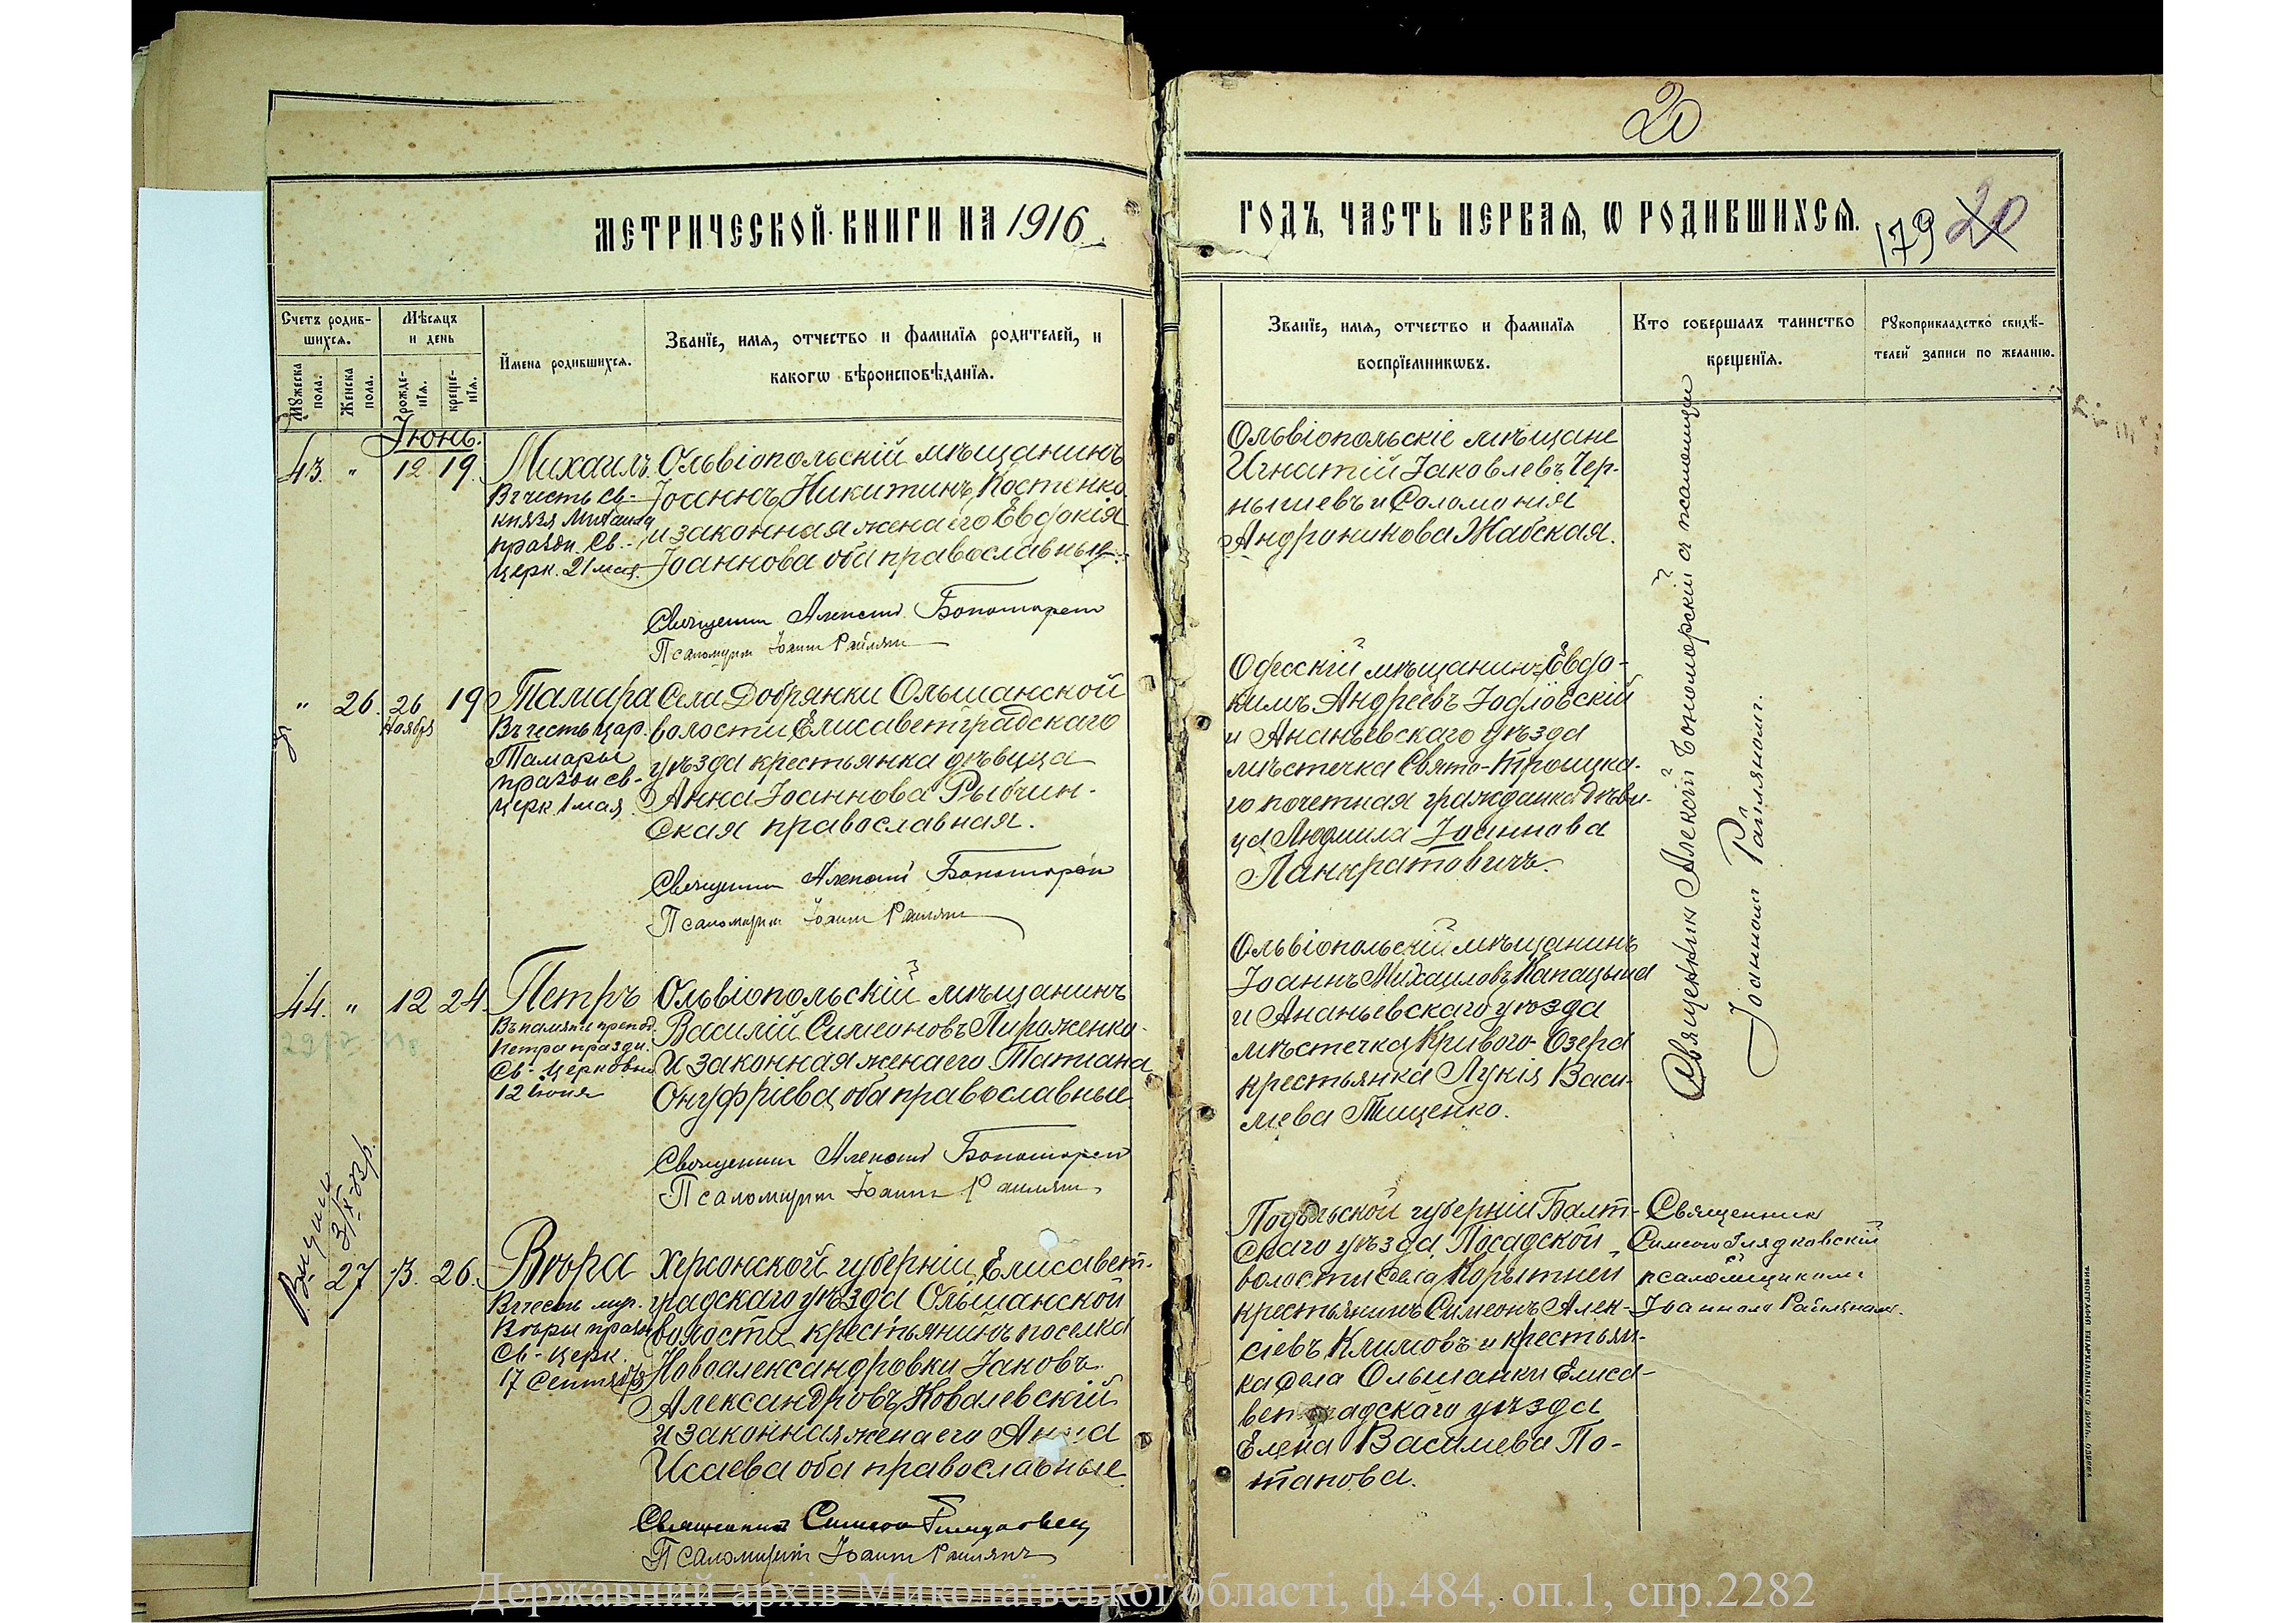 20
МЕТРИЧЕСКОЙ КНИГИ НА 1916
ГОДЪ, ЧАСТЬ ПЕРВАЯ, Ѡ РОДИВШИХСЯ.
179 20
Счетъ родив-
шихся.
Мужеска
пола.
Женска
пола.
Мѣсяцъ
и день
рожде-
нїя.
креще-
нїя.
Имена родившихся.
Званїе, имя, отчество и фамилїя родителей, и
какогѡ вѣроисповѣданїя.
Званїе, имя, отчество и фамилїя
воспрїемникѡвъ.
Кто совершалъ таинство
крещенїя.
Рукоприкладство свидѣ-
телей записи по желанію.
Іюнь.
43. " 12 19.
Михаилъ
Въ честь св.
князя Михаила
праздн. Св.
церк. 21 мая.
Ольвіопольскій мѣщанинъ
Іоаннъ Никитинъ Костенко
и законная жена его Евдокія
Іоаннова оба православные.
Священникъ Алексій
Псаломщикъ Іоаннъ Райлянъ
Ольвіопольскіе мѣщане
Игнатій Іаковлевъ Чер-
нышевъ и Соломонія
Андроникова Жабская.
Священникъ Алексій Бономорскій а псаломщик
Іоанномъ Райляномъ.
" 26. 26 19
Ноября
Тамара
Въ честь цар.
Тамары
праздн св.
церк 1 мая
Села Добрянки Ольшанской
волости Елисаветградскаго
уѣзда крестьянка дѣвица
Анна Іоаннова Рыбчин-
ская православная.
Священникъ Алексій
Псаломщикъ Іоаннъ Райлянъ
Одесскій мѣщанинъ Евдо-
кимъ Андреевъ
и Ананьевскаго уѣзда
мѣстечка Свято-Троицка-
го почетная гражданка дѣви-
ца Людмила Іоаннова
Панкратовичъ.
44. " 12 24.
Петръ
Въ память препод.
Петра праздн.
Св. Церковью
12 іюня
Ольвіопольскій мѣщанинъ
Василій Симеоновъ Пироженко
и законная жена его Татіана
Онуфріева, оба православные.
Священникъ Алексій
Псаломщикъ Іоаннъ Райлянъ
Ольвіопольскій мѣщанинъ
Іоаннъ Михаиловъ Капацына
и Ананьевскаго уѣзда
мѣстечка Кривого-Озера
крестьянка Лукія Васи-
льева Тищенко.
27 13. 26.
Вѣра
Въ честь муч.
Вѣры праздн
Св. церк.
17 Сентября
Херсонской губерніи Елисавет-
градскаго уѣзда Ольшанской
волости крестьянинъ поселка
Новоалександровки Іаковъ
Александровъ Ковалевскій
и законная жена его Анна
Исаева оба православные
Священникъ Симеонъ
Псаломщикъ Іоаннъ Райлянъ
Подольской губерніи Балт-
скаго уѣзда, Посадской
волости села Корытнеи
крестьянинъ Симеонъ Алек-
сіевъ Климовъ и крестьян-
ка села Ольшанки Елиса-
ветградскаго уѣзда
Елена Васильева По-
тапова.
Священник
Симеон Глядковскій
псаломщиком
Іоанномъ Райляном.
Державний архів Миколаївської області, ф.484, оп.1, спр.2282